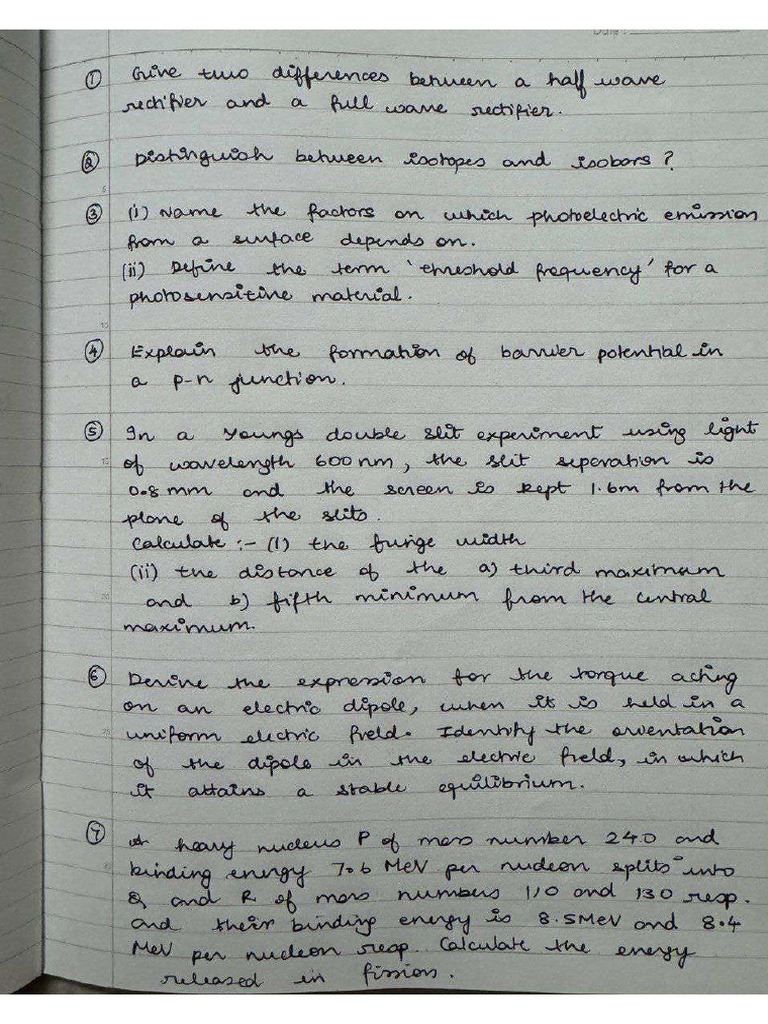 Date :
① Give two differences between a half wave
rectifier and a full wave rectifier.
② Distinguish between isotopes and isobars ?
③ (i) Name the factors on which photoelectric emission
from a surface depends on.
(ii) Define the term 'threshold frequency' for a
photosensitive material.
④ Explain the formation of barrier potential in
a p-n junction.
⑤ In a Youngs double slit experiment using light
of wavelength 600 nm, the slit seperation is
0.8 mm and the screen is kept 1.6m from the
plane of the slits.
Calculate :- (1) the fringe width
(ii) the distance of the a) third maximum
and b) fifth minimum from the central
maximum.
⑥ Derive the expression for the torque acting
on an electric dipole, when it is held in a
uniform electric field. Identify the orientation
of the dipole in the electric field, in which
it attains a stable equilibrium.
⑦ A heavy nucleus P of mass number 240 and
binding energy 7.6 MeV per nucleon splits into
Q and R of mass numbers 110 and 130 resp.
and their binding energy is 8.5MeV and 8.4
MeV per nucleon resp. Calculate the energy
released in fission.